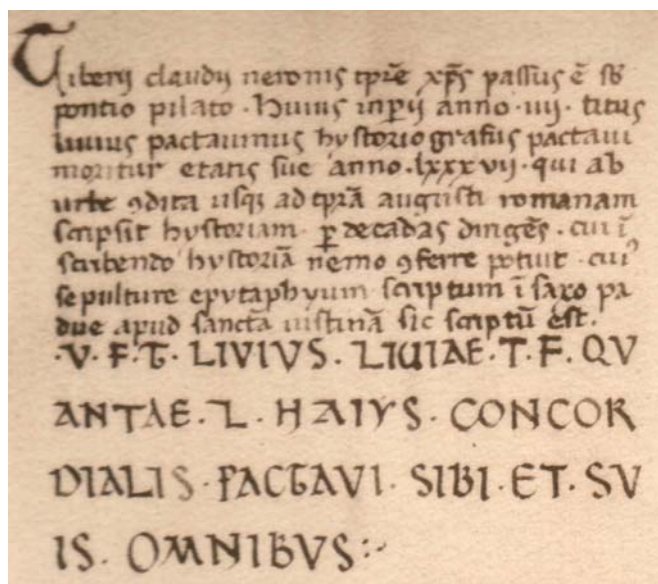 Tiberij claudij neronis tp̄re xp̄s passus ē sƀ
pontio pilato · Huius inperij anno · iiij · titus
liuius pactauinus hystoriografus pactaui
moritur etatis sue anno · lxxxvij · qui ab
urbe ꝯdita usqꝫ ad tp̄ra augusti romanam
scripsit hystoriam · ꝑ decadas dirigēs · cui ī
scribendo hystoriā nemo ꝯferre potuit · cuiꝰ
sepulture epytaphyum scriptum ī saxo pa
due apud sanctā iustinā sic scriptū est ·
· V · F · T · LIVIVS · LIVIAE · T · F · QV
ANTAE · L · HAIYS · CONCOR
DIALIS · PACTAVI · SIBI · ET · SV
IS · OMNIBVS :·